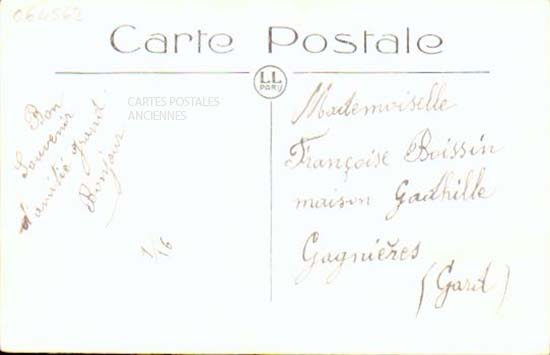 064562
Carte Postale
LL
PARIS
CARTES POSTALES
ANCIENNES
Bon
Souvenir
d'amitié grand
Bonjour
1/16
Mademoiselle
Françoise Boissin
maison Gadhille
Gagnières
(Gard)